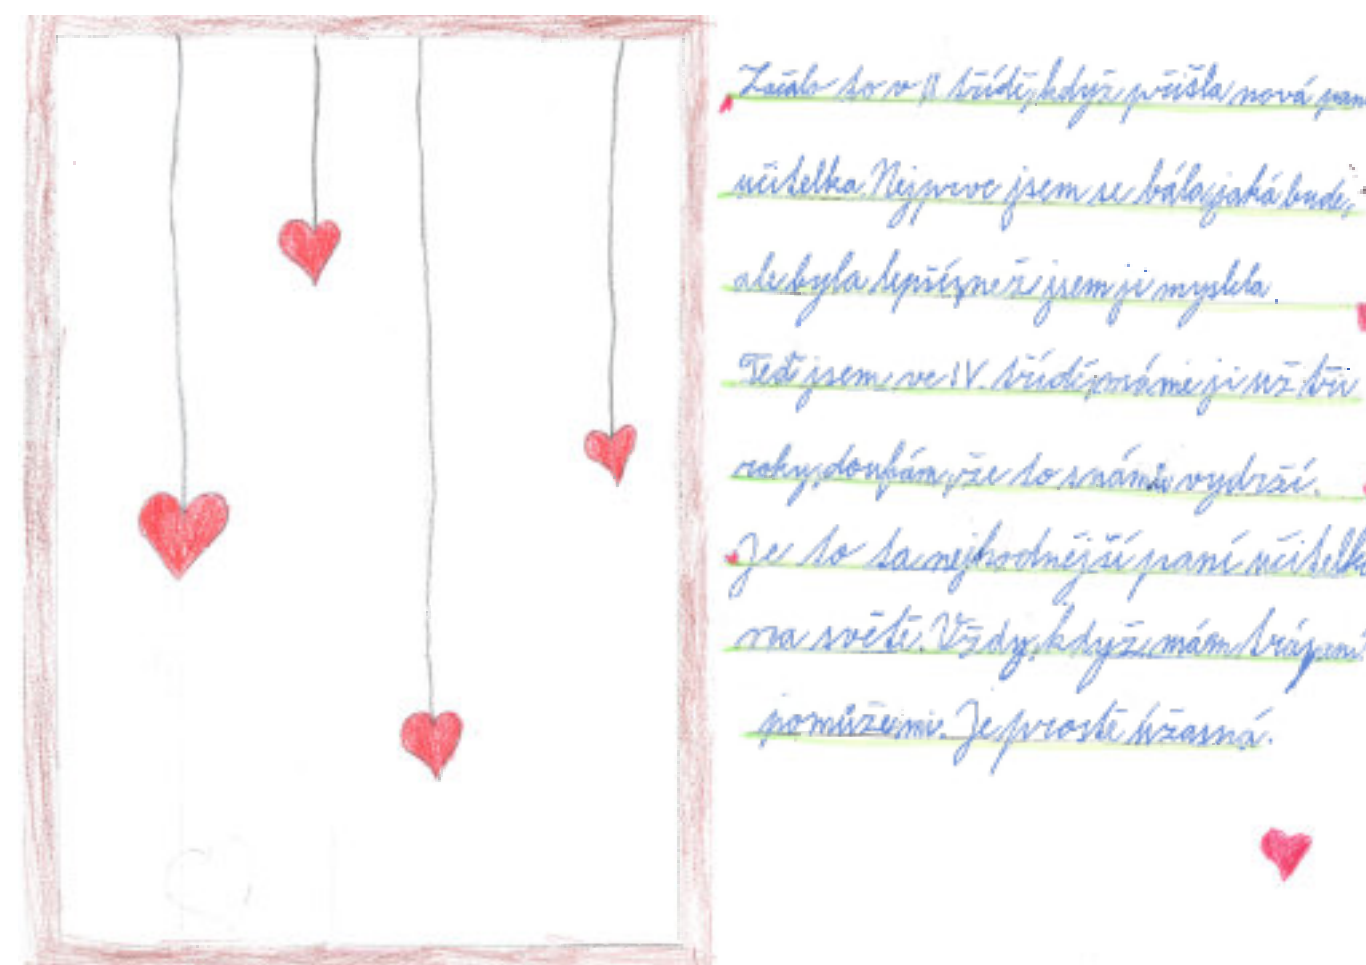 Začalo to v II třídě, když přišla nová paní
učitelka. Nejprve jsem se bála, jaká bude,
ale byla lepší, než jsem ji myslela.
Teď jsem, ve IV. třídě, máme ji už tři
roky, doufám, že to s námi vydrží.
Je to ta nejhodnější paní učitelka
na světě. Vždy, když, mám trápení
pomůže mi. Je prostě úžasná.